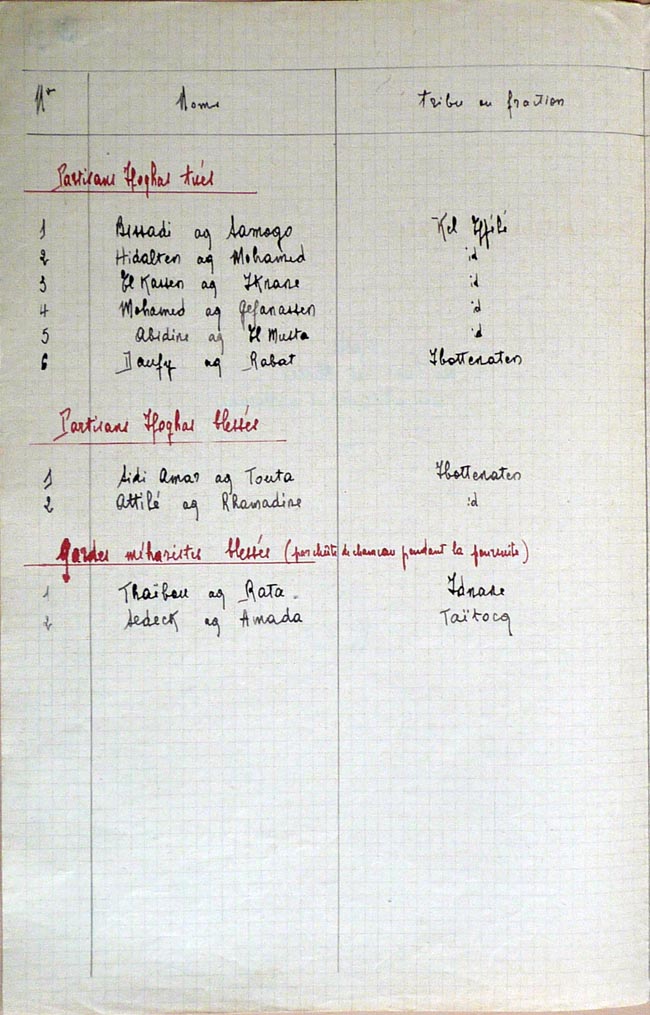 Nos Noms Tribu ou fraction
Partisans Ifoghas tués
1 Bissadi ag Samogo Kel Iffilé
2 Hidalten ag Mohamed id
3 El Kassen ag Iknane id
4 Mohamed ag Gefanassen id
5 Abidine ag El Musta id
6 Daufy ag Rabat Ibottenaten
Partisans Ifoghas blessés
1 Sidi Amar ag Touta Ibottenaten
2 Attilé ag R'hamadine id
Gardes méharistes blessés (par chûte de chameau pendant la poursuite)
1 Thaïbou ag Rata Idnane
2 Sedeck ag Amada Taïtocq